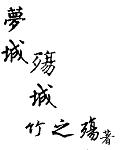 夢城
殤城
竹之殤著